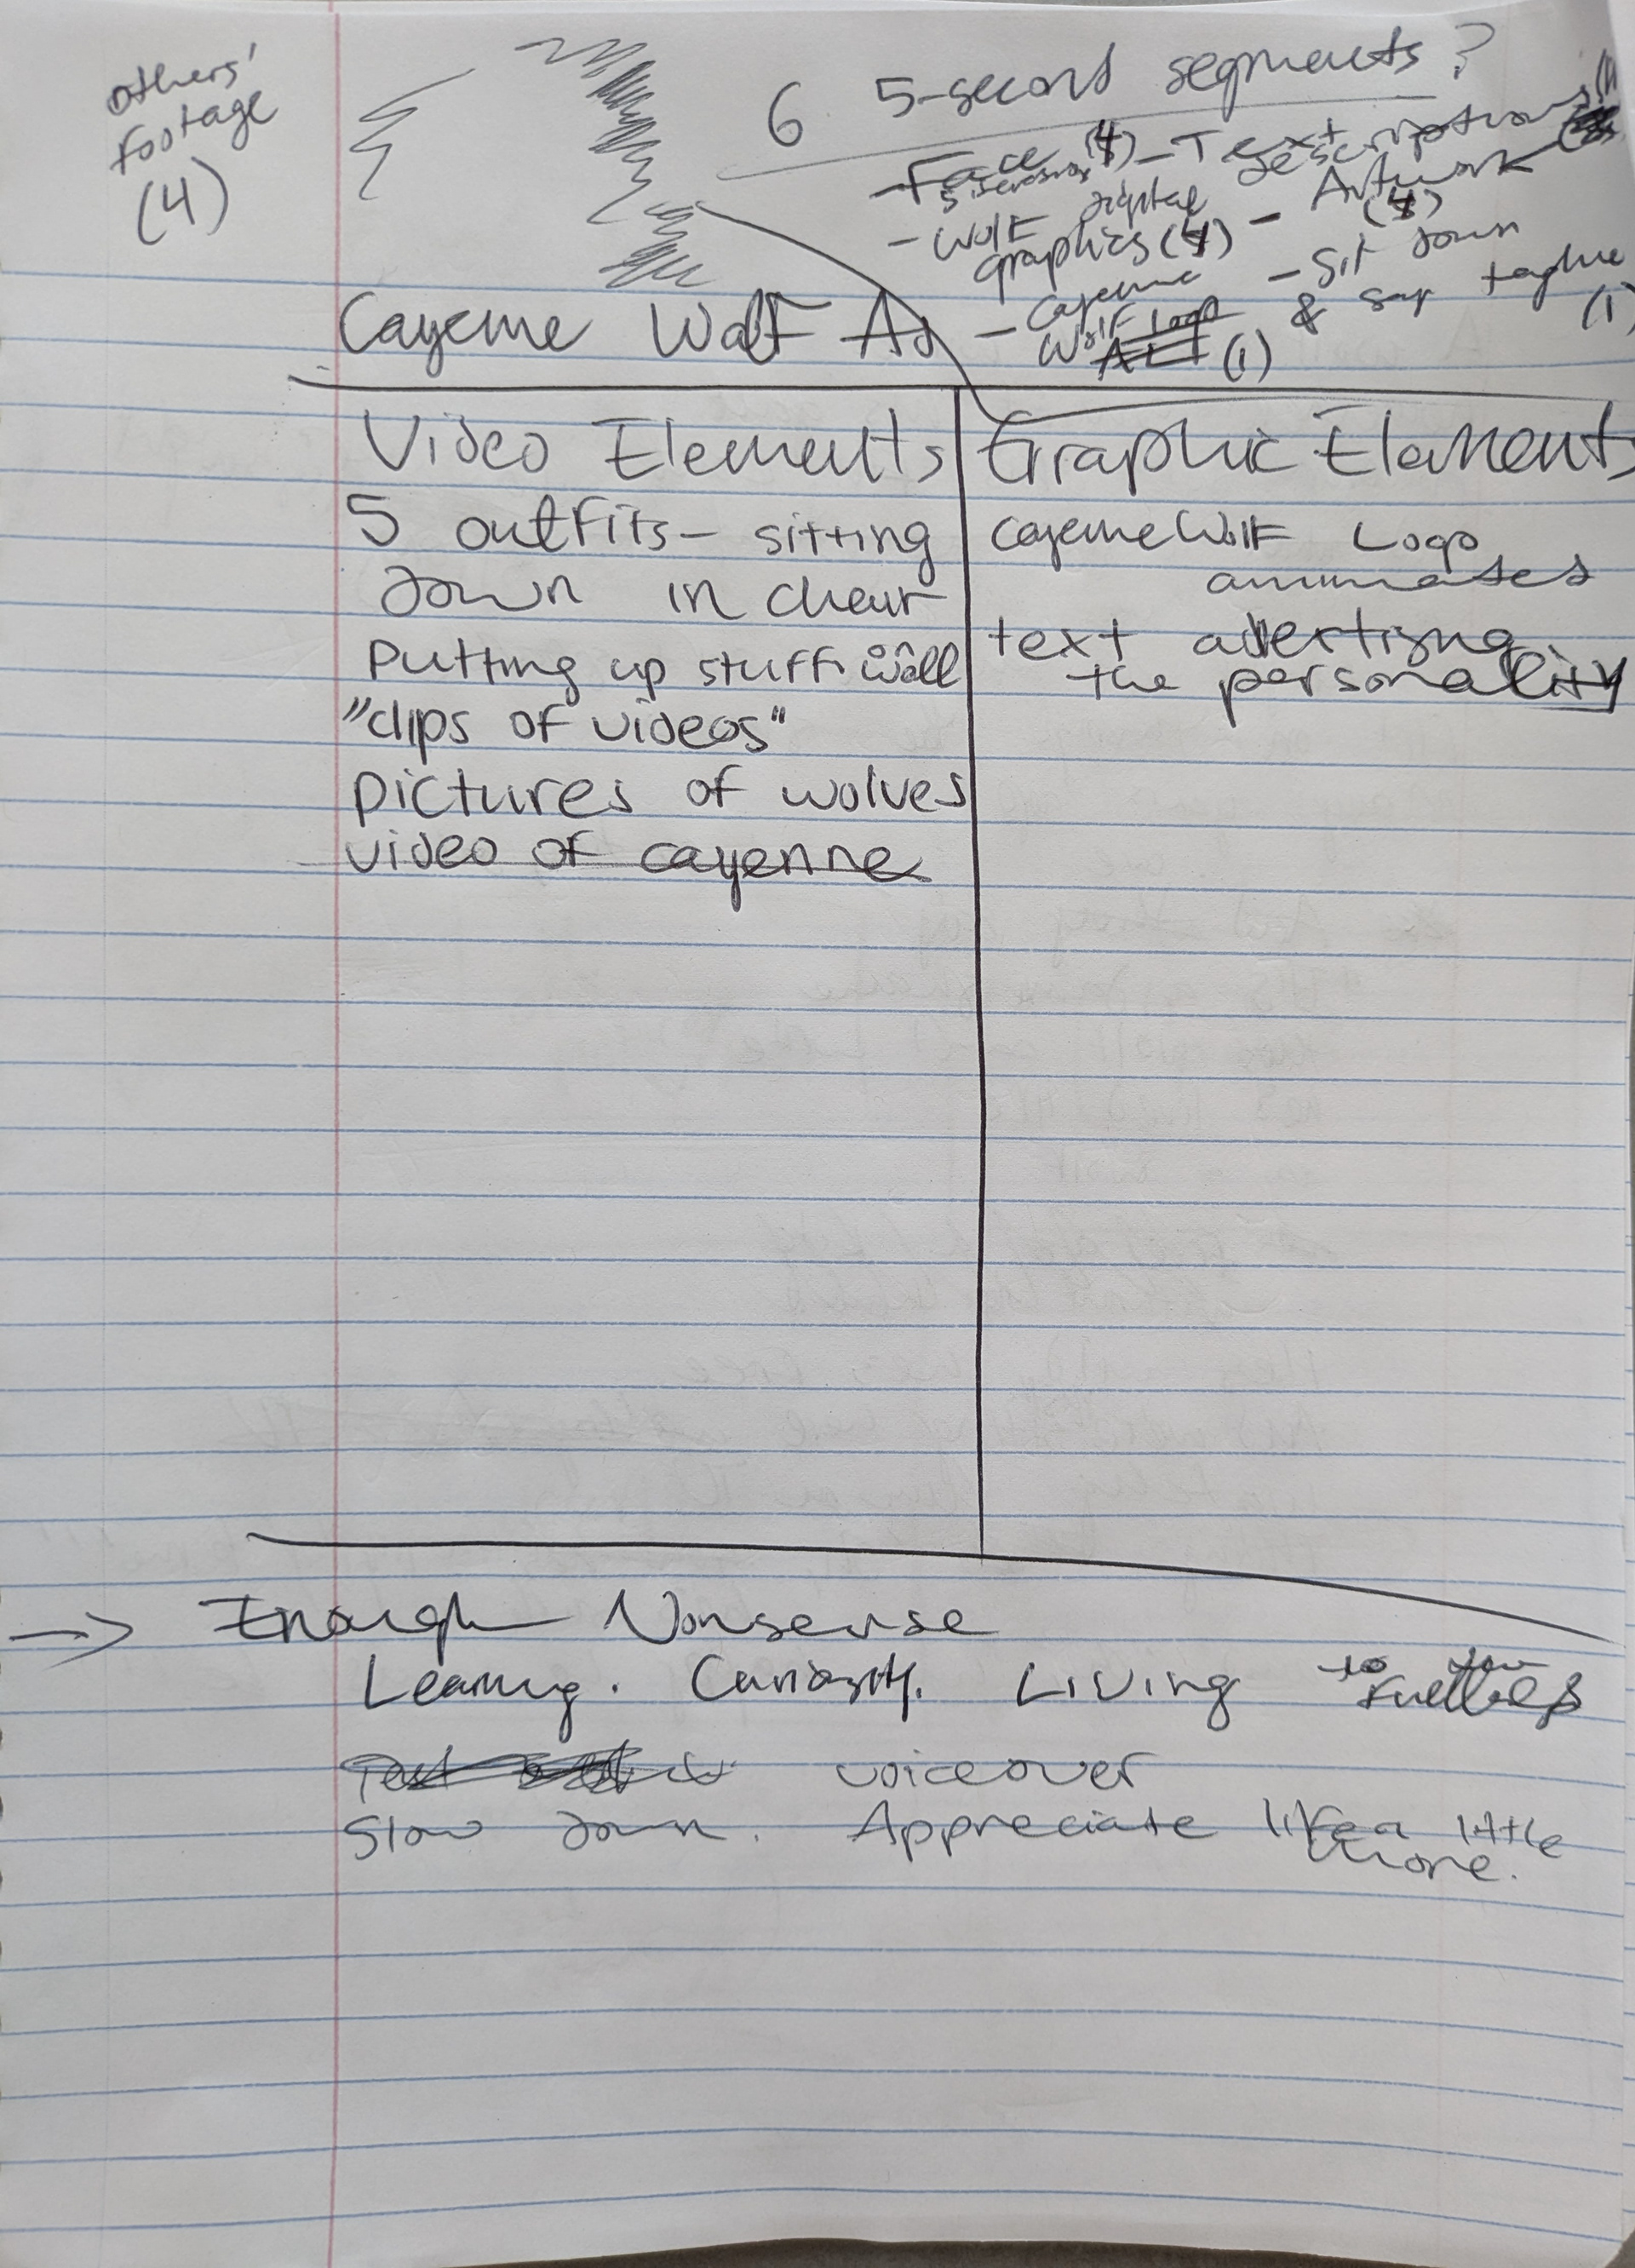 others'
footage
(4)
6 5-second segments?
- Face (4)
- Text descriptions
- Wolf digital
graphics (4)
- Artwork
(4)
- Cayenne
Wolf Logo
(1)
- Sit down
& say tagline
(1)
Cayenne Wolf Ad
Video Elements
5 outfits - sitting
down in chair
Putting up stuff on wall
"clips of videos"
pictures of wolves
video of cayenne
Graphic Elements
Cayenne Wolf Logo
animated
text advertising
the personality
→ Enough Nonsense
Learning. Curiosity. Living to the fullest
voiceover
Slow down. Appreciate life a little
more.